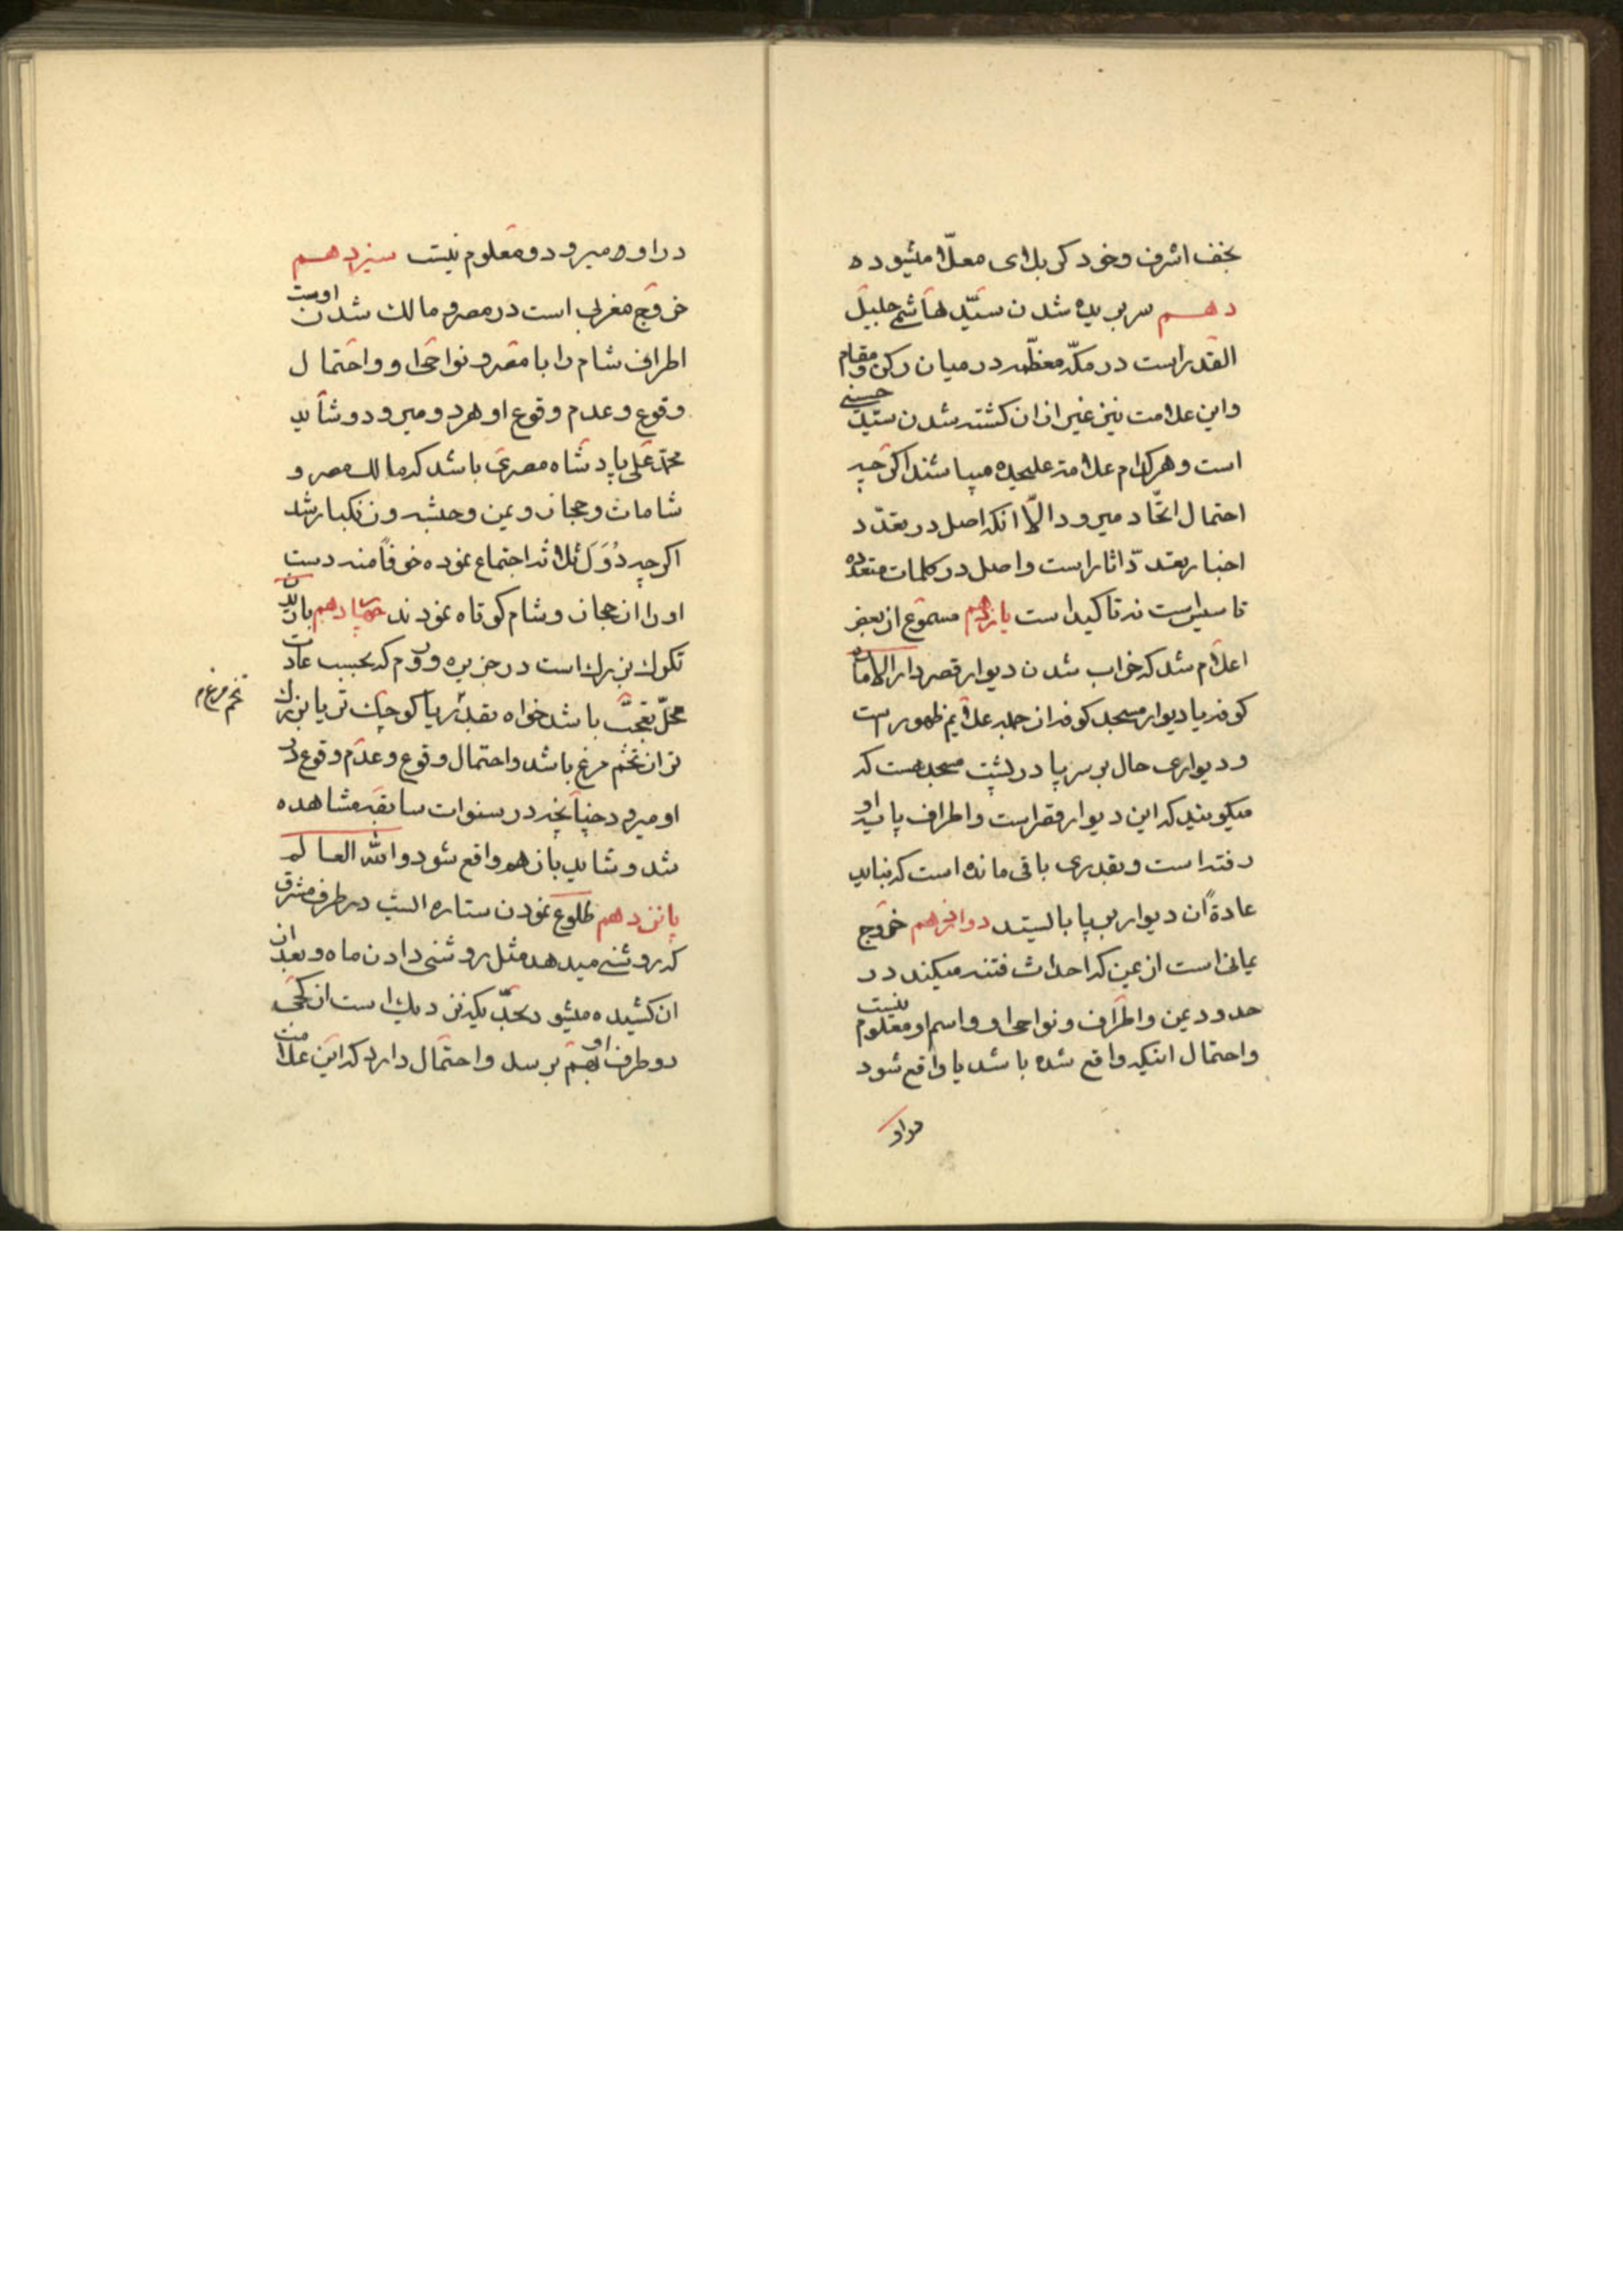 نجف اشرف وخود كربلاى معلّا میشوده
دهم سر بریده شدن سیّد هاشمى جلیل
القدر است در مکّه معظّمه در میان رکن و مقام
واین علامت نیز غیر از ان کشته شدن سیّد حسنى
است وهرکدام علامة علیحده میباشند اکرچه
احتمال اتّحاد میرود الّا انکه اصل در تعدّد
اخبار تعدّد اثار است واصل در کلمات متعدده
تاسیس است نه تاکید است یازدهم مسموع از بعض
اعلام شد که خراب شدن دیوار قصر دار الاماره
کوفه یا دیوار مسجد کوفه از جمله علایم ظهور است
ودیوارى حال بر سر پا در پشت مسجد هست که
میکویند که این دیوار قصر است واطراف پایه او
رفته است وبقدرى باقى مانده است که نباید
عادةً ان دیوار بر پا بایستد دوازدهم خروج
یمانى است از یمن که احداث فتنه میکند در
حدود یمن واطراف ونواحى او واسم او معلوم نیست
واحتمال اینکه واقع شده باشد یا واقع شود
در او
در او میرود ومعلوم نیست سیزدهم
خروج مغربى است در مصر ومالک شدن اوست
اطراف شام را با مصر ونواحى او واحتمال
وقوع وعدم وقوع او هردو میرود وشاید
محمّد على پادشاه مصرى باشد که مالک مصر و
شامات وحجاز ویمن وحبشه وزنکبار شد
اکرچه دُوَل ثلاثه اجتماع نموده خوفاً منه دست
او را از حجاز وشام کوتاه نمودند چهاردهم باریدن
تکرک بزرک است در جزیره وروم که بحسب عادت
محلّ تعجّب باشد خواه بقدر یا کوچک تر یا بزرک
تخم مرغ م
تر از تخم مرغ باشد واحتمال وقوع وعدم وقوع در
او میرود چنانچه در سنوات سابقه مشاهده
شد وشاید باز هم واقع شود والله العالم
پانزدهم طلوع نمودن ستاره ایست در طرف مشرق
که روشنى میدهد مثل روشنى دادن ماه وبعد از
ان کشیده میشود بحدّیکه نزدیک است از کجى
دو طرف او بهم برسد واحتمال دارد که این علامت